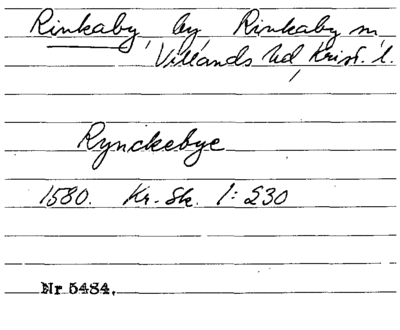 Rinkaby, by, Rinkaby sn
Villands hd, Krist. l.
Rynckebye
1580. Kr. Sk. 1: 230
Nr 5484.